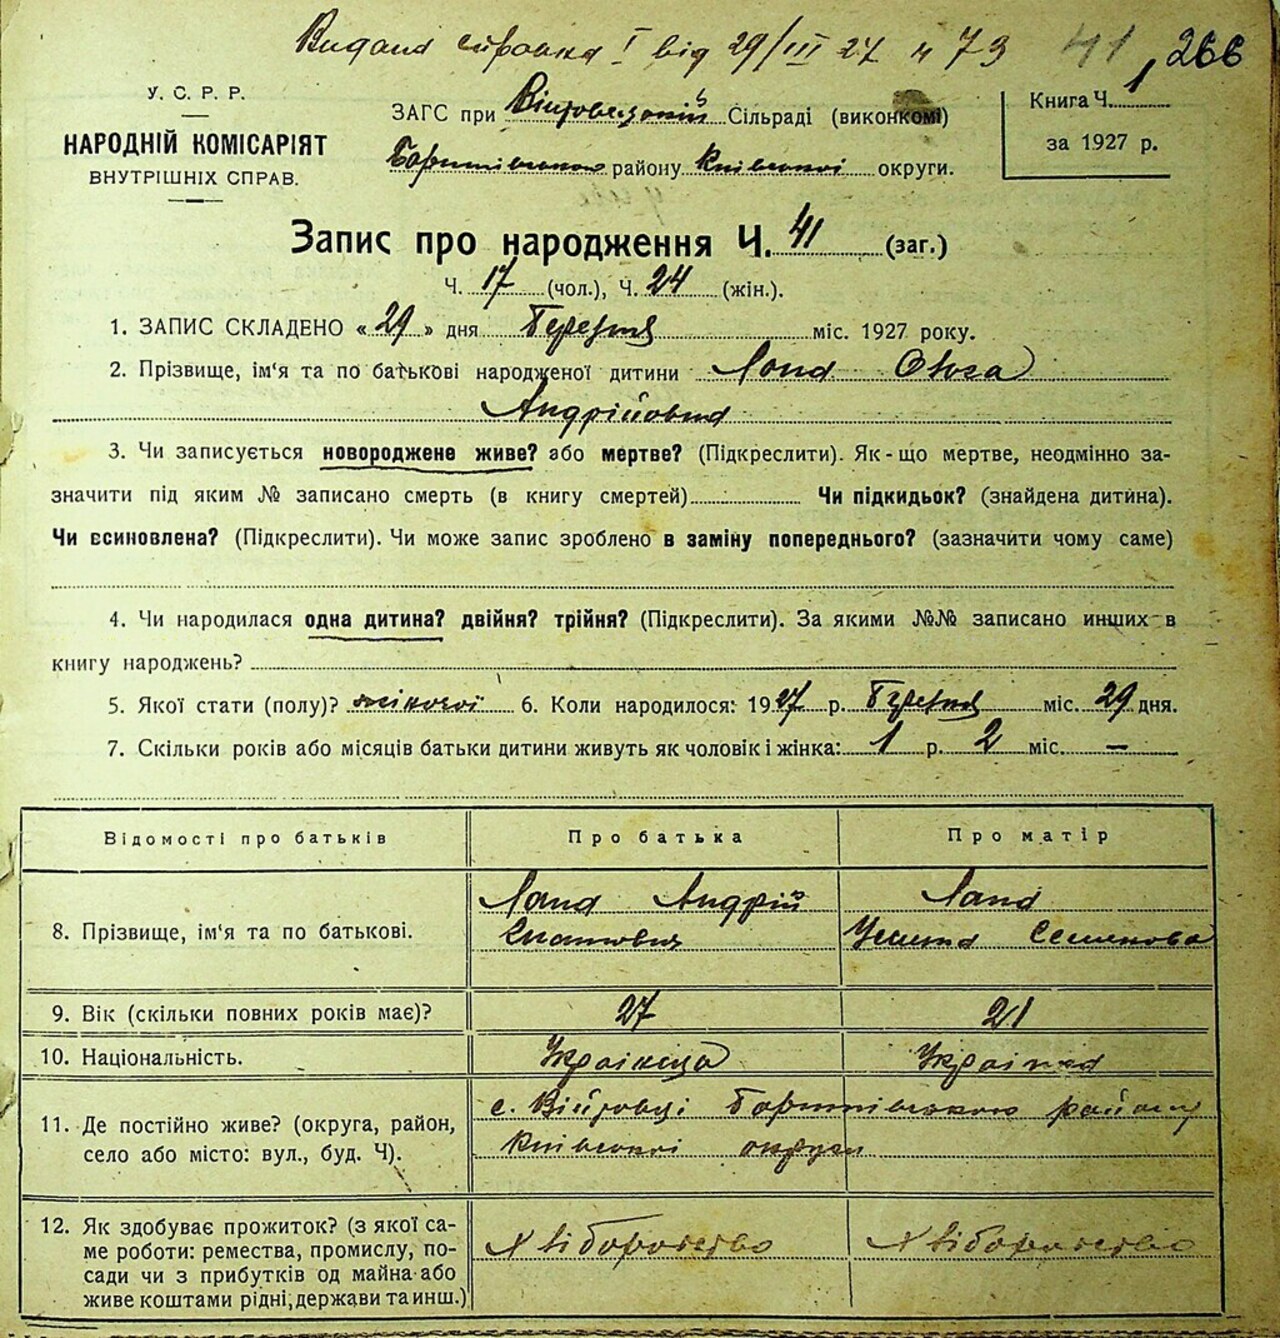 Видана справка І від 29/III 27 ч 73 41 266
У. С. Р. Р.
НАРОДНІЙ КОМІСАРІЯТ
ВНУТРІШНІХ СПРАВ.
ЗАГС при Війтовецькій Сільраді (виконкомі)
району Київської округи.
Книга Ч. 1
за 1927 р.
Запис про народження Ч. 41 (заг.)
Ч. 17 (чол.), Ч. 24 (жін.).
1. ЗАПИС СКЛАДЕНО «29» дня Березня міс. 1927 року.
2. Прізвище, ім'я та по батькові народженої дитини
Андрійовна
3. Чи записується новороджене живе? або мертве? (Підкреслити). Як-що мертве, неодмінно за-
значити під яким № записано смерть (в книгу смертей) Чи підкидьок? (знайдена дитина).
Чи всиновлена? (Підкреслити). Чи може запис зроблено в заміну попереднього? (зазначити чому саме)
4. Чи народилася одна дитина? двійня? трійня? (Підкреслити). За якими №№ записано инших в
книгу народжень?
5. Якої стати (полу)? жіночої 6. Коли народилося: 1927 р. Березня міс. 29 дня.
7. Скільки років або місяців батьки дитини живуть як чоловік і жінка: 1 р. 2 міс. —
Відомості про батьків Про батька Про матір
8. Прізвище, ім'я та по батькові.
Андрій
9. Вік (скільки повних років має)? 27 21
10. Національність. Українець Українка
11. Де постійно живе? (округа, район,
село або місто: вул., буд. Ч).
с. Війтовці району
Київської округи
12. Як здобуває прожиток? (з якої са-
ме роботи: ремества, промислу, по-
сади чи з прибутків од майна або
живе коштами рідні, держави та инш.)
Хліборобство Хліборобство